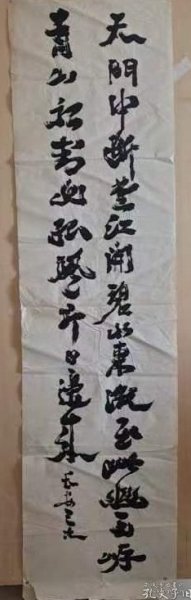 天門中斷楚江開碧水東流至此迴兩岸
青山相對出孤帆一片日邊來
孔夫子旧